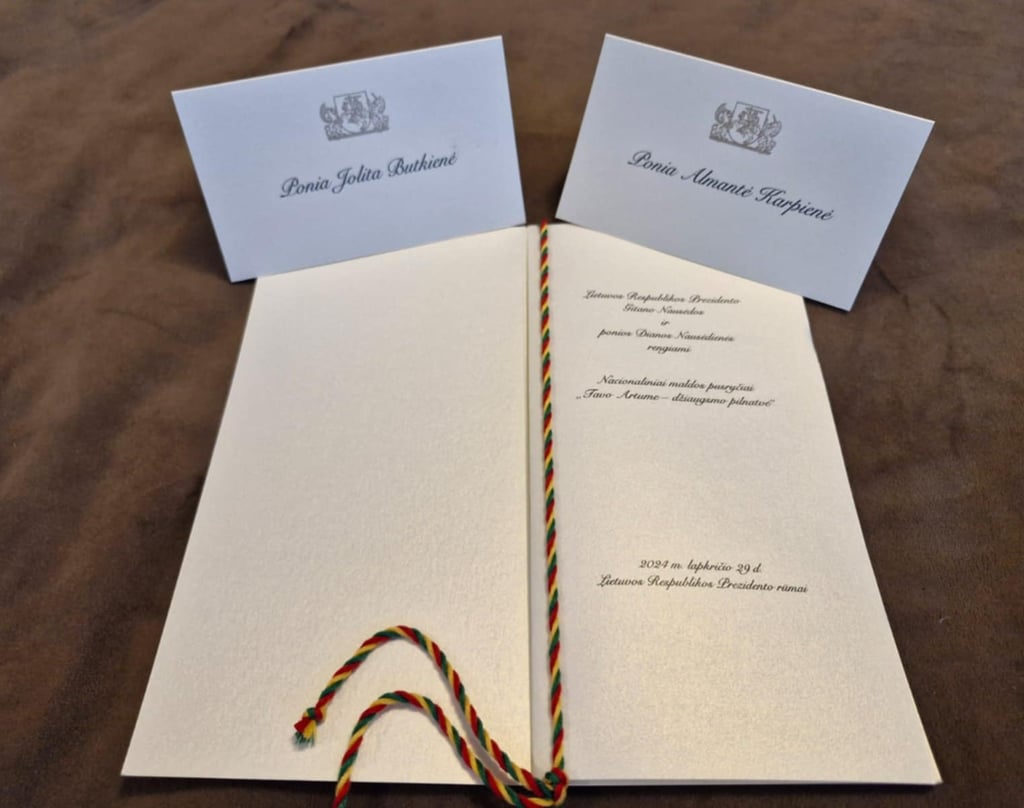 Ponia Jolita Butkienė
Ponia Almantė Karpienė
Lietuvos Respublikos Prezidento
Gitano Nausėdos
ir
ponios Dianos Nausėdienės
rengiami
Nacionaliniai maldos pusryčiai
„Tavo Artume – džiaugsmo pilnatvė“
2024 m. lapkričio 29 d.
Lietuvos Respublikos Prezidento rūmai